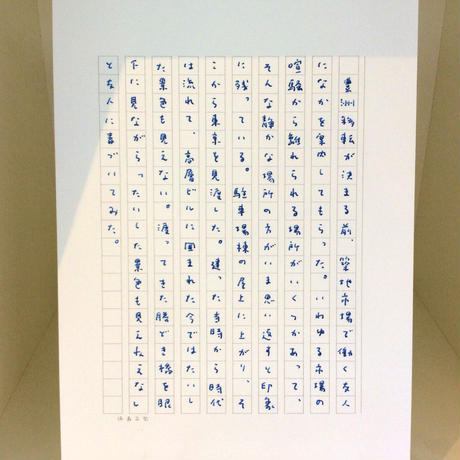 豊洲移転が決まる前、築地市場で働く友人
になかを案内してもらった。いわゆる市場の
喧騒から離れられる場所がいくつかあって、
そんな静かな場所の方がいま思い返すと印象
に残っている。駐車場棟の屋上に上がり、そ
こから東京を見渡した。建った当時から時代
は流れて、高層ビルに囲まれた今ではたいし
た景色も見えない。渡ってきた勝どき橋を眼
下に見ながらったいした景色も見えねえなし
と友人に毒づいてみた。